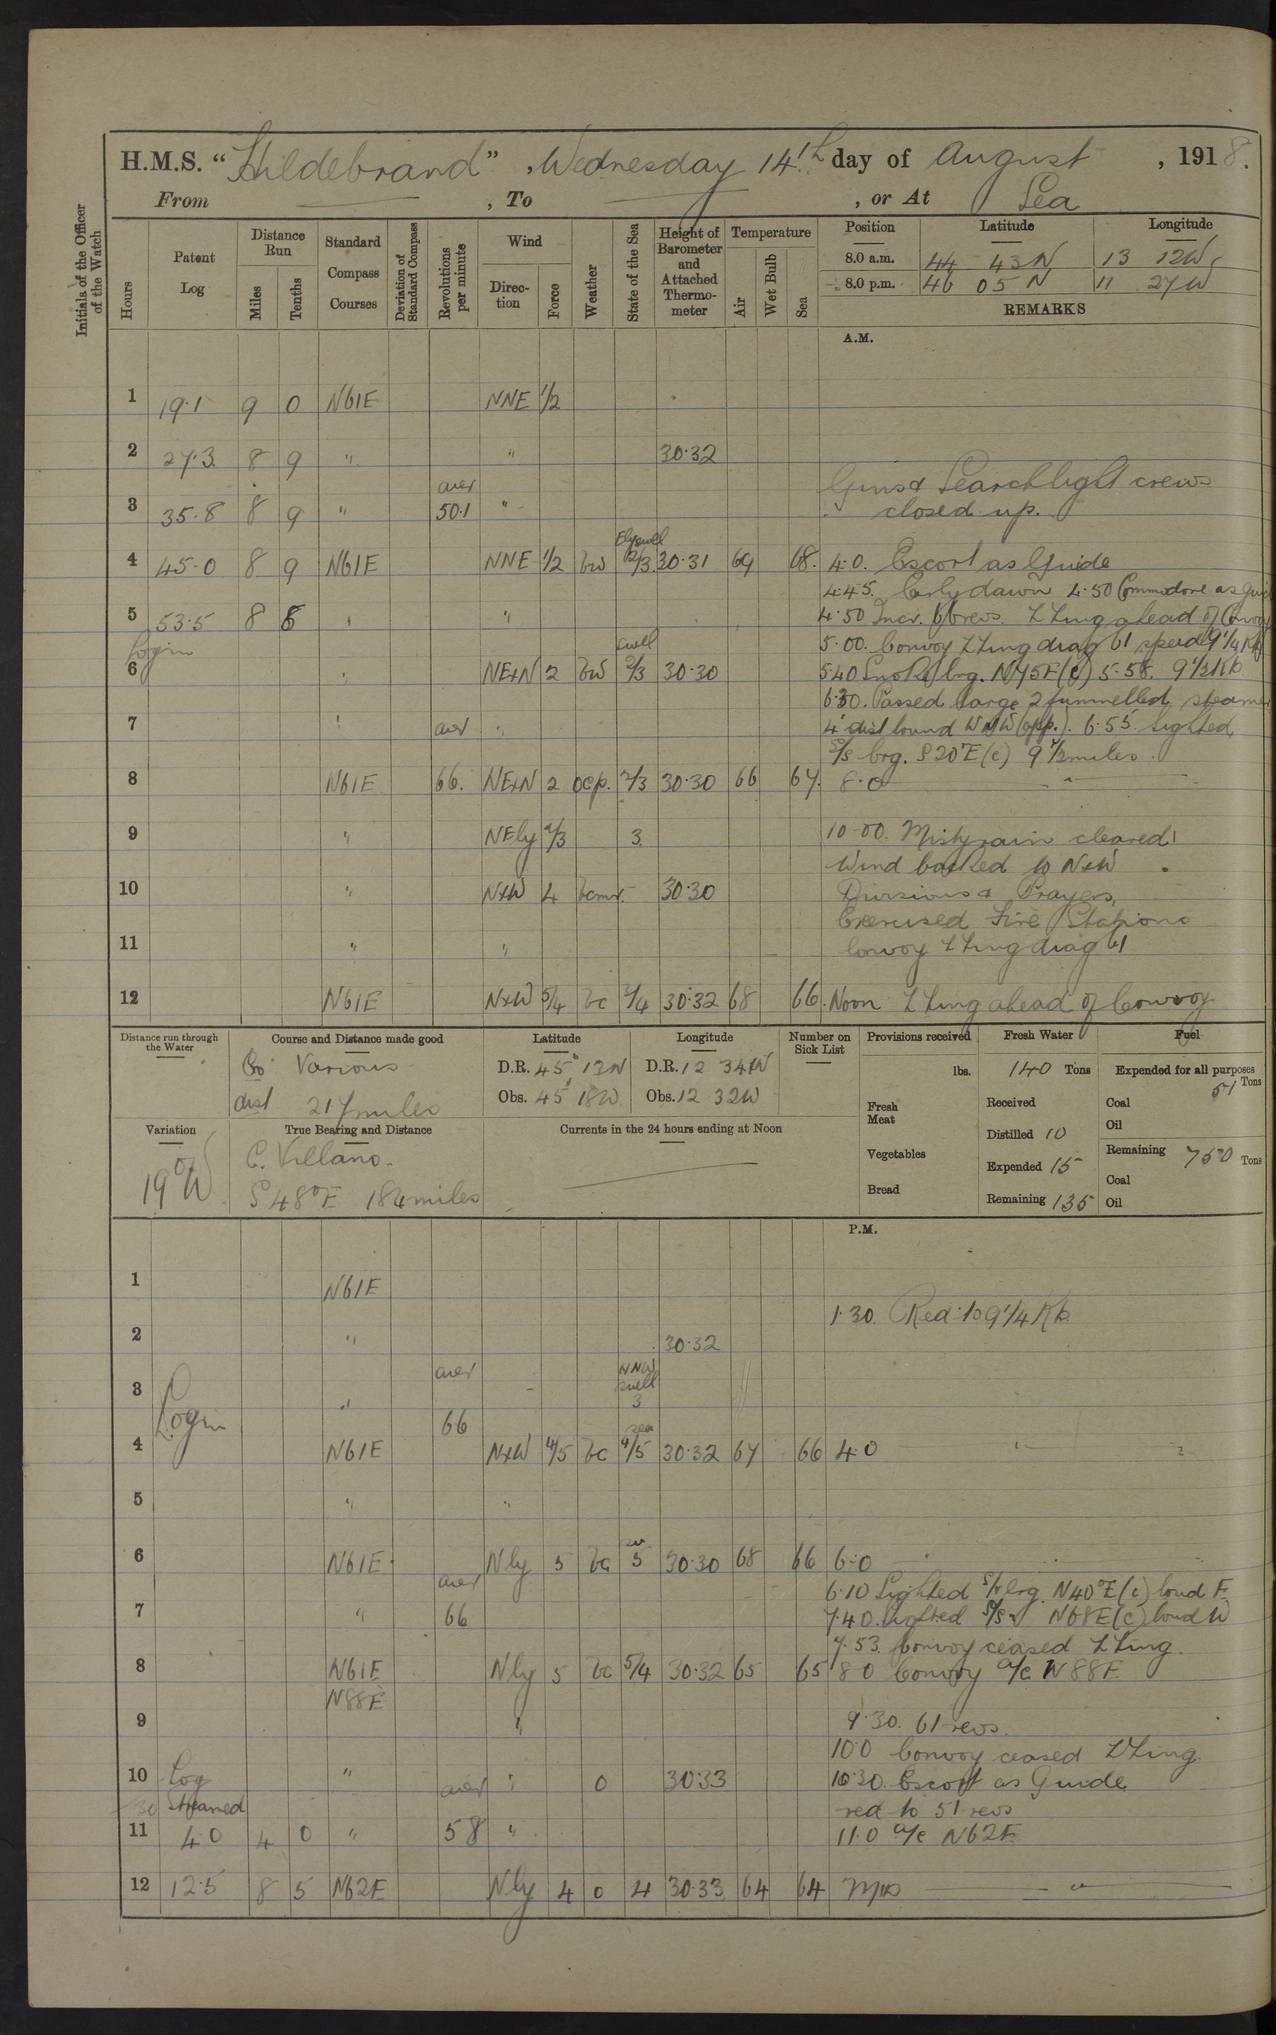 H.M.S. "Hildebrand", Wednesday 14th day of August, 1918.
From — , To — , or At Sea
Initials of the Officer of the Watch
Hours
Patent Log
Distance Run
Miles
Tenths
Standard Compass Courses
Deviation of Standard Compass
Revolutions per minute
Wind
Direction
Force
Weather
State of the Sea
Height of Barometer and Attached Thermometer
Temperature
Air
Wet Bulb
Sea
Position Latitude Longitude
8.0 a.m. 44 43 N 13 12 W
8.0 p.m. 46 05 N 11 27 W
REMARKS
A.M.
1 19.1 9 0 N61E NNE 1/2
2 27.3 8 9 " " 30.32
Guns & Searchlight crews
aver
3 35.8 8 9 " 50.1 " closed up.
Ely swell
4 45.0 8 9 N61E NNE 1/2 bw 2/3 30.31 69 68. 4.0. Escort as Guide
4.45. Early dawn 4.50 Commodore as
5 53.5 8 " " 4.50 Incr. revs. ZZing ahead of Convoy
Log in swell 5.00. Convoy ZZing diag 61 speed 9 1/4 Kts
6 " NExN 2 bw 2/3 30.30 5.40 Smoke brg. N75E (c) 5.58. 9 1/2 Kts
6.30. Passed large 2 funnelled steamer
7 " aver " 4' dist bound WNW (opp.). 6.55 Sighted
S/S brg. S20°E (c) 9 1/2 miles.
8 N61E 66. NExN 2 ocp. 2/3 30.30 66 67. 8.0 — " —
9 " NEly 2/3 3. 10.00. Misty rain cleared
Wind backed to NxW
10 " NxW 4 bcmr. 30.30 Divisions & Prayers.
Exercised Fire Stations
11 " " Convoy ZZing diag 61
12 N61E NxW 5/4 bc 3/4 30.32 68 66. Noon ZZing ahead of Convoy
Distance run through the Water
Course and Distance made good
Co: Various
dist 217 miles
Latitude
D.R. 45° 13N
Obs. 45° 18W
Longitude
D.R. 12 34W
Obs. 12 32W
Number on Sick List
Provisions received
lbs.
Fresh Meat
Vegetables
Bread
Fresh Water
140 Tons
Received
Distilled 10
Expended 15
Remaining 135
Fuel
Expended for all purposes
Coal 51 Tons
Oil
Remaining 750 Tons
Coal
Oil
Variation
19°W
True Bearing and Distance
C. Villano.
S48°E 184 miles
Currents in the 24 hours ending at Noon
P.M.
1 N61E
1.30. Red. to 9 1/4 Kts.
2 " 30.32
aver NNW swell
3 " 3
Log in 66 sea
4 N61E NxW 4/5 bc 4/5 30.32 67 66 4.0 — " — "
5 " "
6 N61E Nly 5 bc 5 30.30 68 66 6.0 "
aver 6.10 Sighted S/S brg. N40°E (c) bound E
7 " 66 7.40. Sighted S/S " N68E (c) bound W
7.53. Convoy ceased ZZing.
8 N61E Nly 5 bc 5/4 30.32 65 65 8.0 Convoy a/c N88E
N88E
9 " 9.30. 61 revs.
10.0 Convoy ceased ZZing
10 Log " aver " 0 30.33 10.30. Escort as Guide
30 Streamed red to 51 revs
11 4.0 4 0 " 58 " 11.0 a/c N62E
12 12.5 8 5 N62E Nly 4 0 4 30.33 64 64 Mid — " —